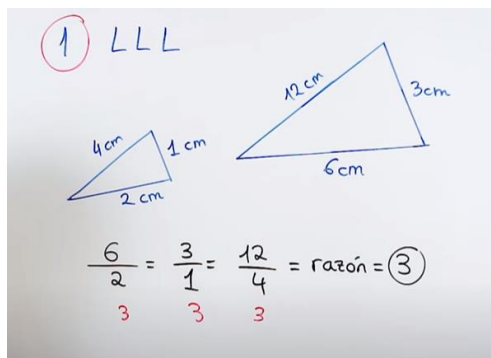 1 LLL
12cm
3cm
4cm
1cm
2cm
6cm
6/2 = 3/1 = 12/4 = razón = 3
3 3 3